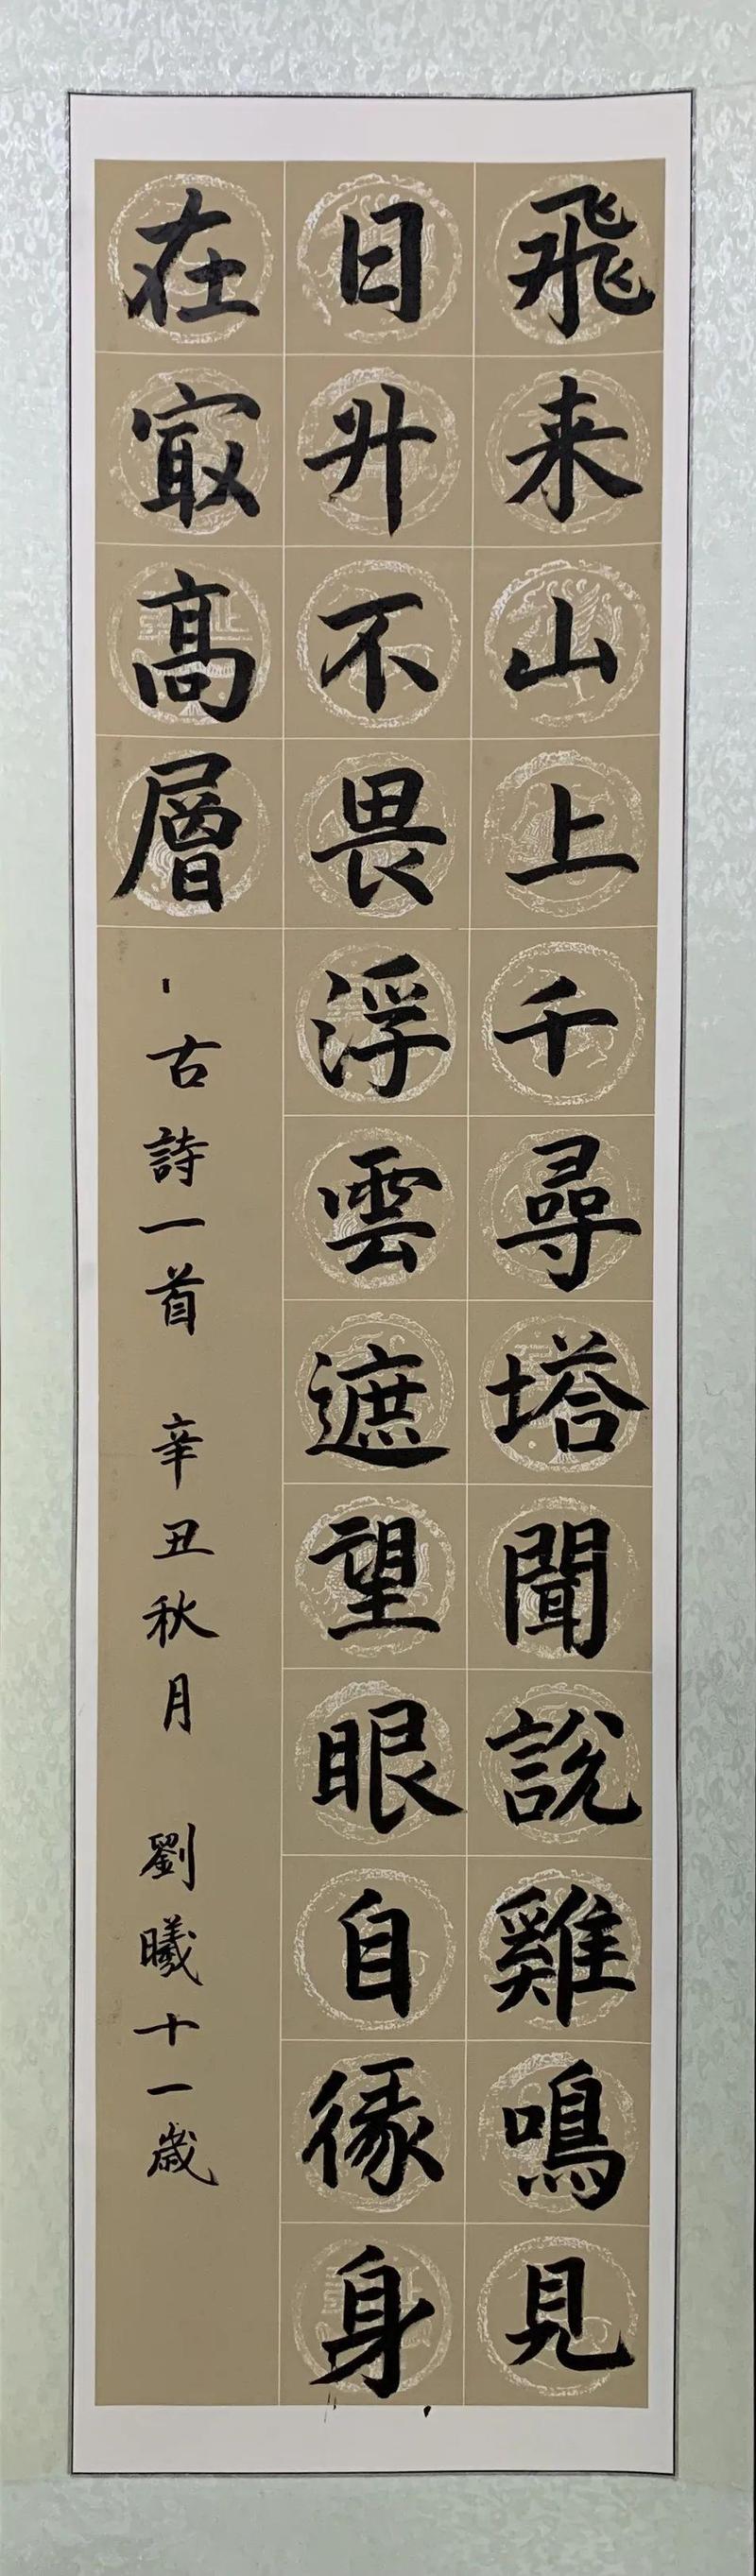 飛来山上千尋塔聞說雞鳴見
日升不畏浮雲遮望眼自緣身
在寂高層
古詩一首 辛丑秋月 劉曦十一歲